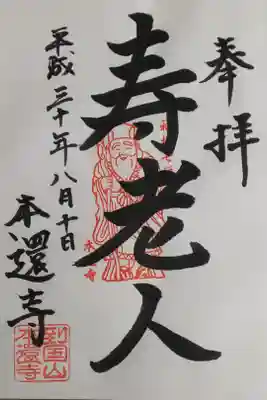 奉拝
寿老人
平成三十年八月十日
本還寺
本還寺